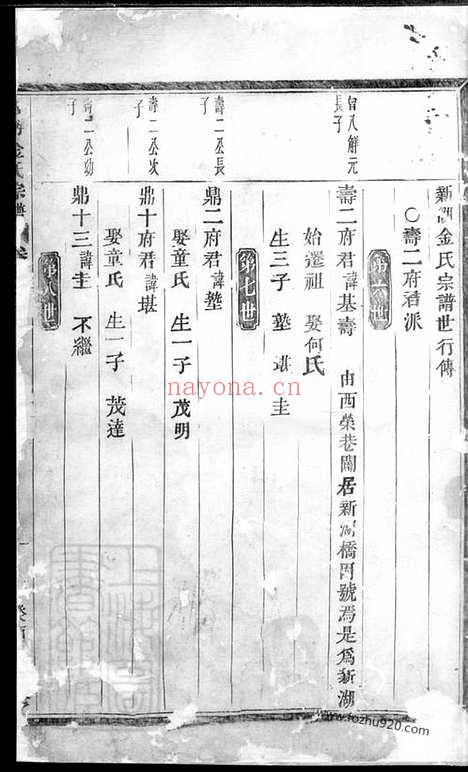 新湖金氏宗譜世行傳
○壽二府君派
第六世
曾八解元長子
壽二府君諱基壽 由西榮巷關居新湖橋因號焉是爲新湖
始遷祖 娶何氏
生三子 塾 堪 圭
第七世
壽二公長子
鼎二府君諱塾
娶童氏 生一子 茂明
壽二公次子
鼎十府君諱堪
娶童氏 生一子 茂達
壽二公幼子
鼎十三諱圭 不繼
第八世
金氏宗譜
nayona.cn
www.fozhu920.com